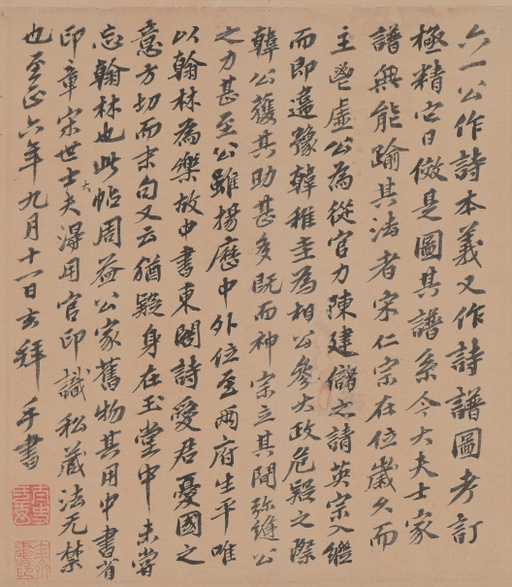 六一公作詩本義又作詩譜圖考訂
極精它日倣是圖其譜系今大夫士家
譜無能踰其法者宋仁宗在位歲久而
主鬯虛公為從官力陳建儲之請英宗入繼
而即違豫韓稚圭為相公參大政危疑之際
韓公獲其助甚多既而神宗立其間弥縫公
之力甚至公雖揚歷中外位至兩府生平唯
以翰林為樂故中書東閣詩愛君憂國之
意方切而末句又云猶疑身在玉堂中未嘗
忘翰林也此帖周益公家舊物其用中書省
印章宋世士大夫得用官印識私藏法无禁
也至正六年九月十一日玄拜手書